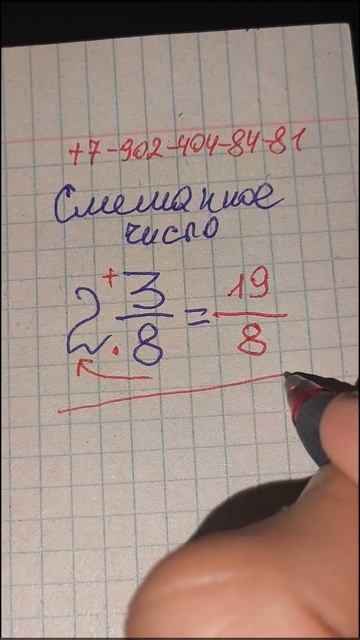 +7-902-404-84-81
Смешанное
число
2 + 3/8 = 19/8